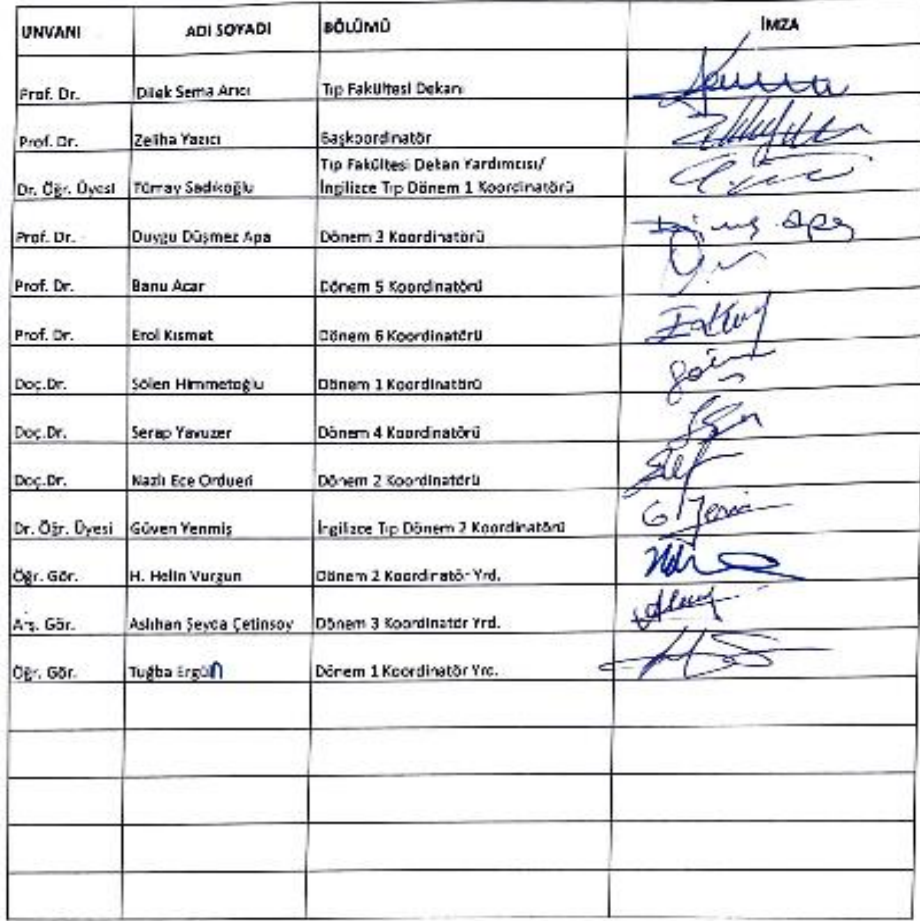 UNVANI ADI SOYADI BÖLÜMÜ İMZA
Prof. Dr. Dilek Sema Arıcı Tıp Fakültesi Dekanı
Prof. Dr. Zeliha Yazıcı Başkoordinatör
Dr. Öğr. Üyesi Tümay Sadıkoğlu Tıp Fakültesi Dekan Yardımcısı/
İngilizce Tıp Dönem 1 Koordinatörü
Prof. Dr. Duygu Düşmez Apa Dönem 3 Koordinatörü
Prof. Dr. Banu Acar Dönem 5 Koordinatörü
Prof. Dr. Erol Kısmet Dönem 6 Koordinatörü
Doç.Dr. Sölen Himmetoğlu Dönem 1 Koordinatörü
Doç.Dr. Serap Yavuzer Dönem 4 Koordinatörü
Doç.Dr. Nazlı Ece Ordueri Dönem 2 Koordinatörü
Dr. Öğr. Üyesi Güven Yenmiş İngilizce Tıp Dönem 2 Koordinatörü
Öğr. Gör. H. Helin Vurgun Dönem 2 Koordinatör Yrd.
Arş. Gör. Aslıhan Şeyda Çetinsoy Dönem 3 Koordinatör Yrd.
Öğr. Gör. Tuğba Ergün Dönem 1 Koordinatör Yrd.